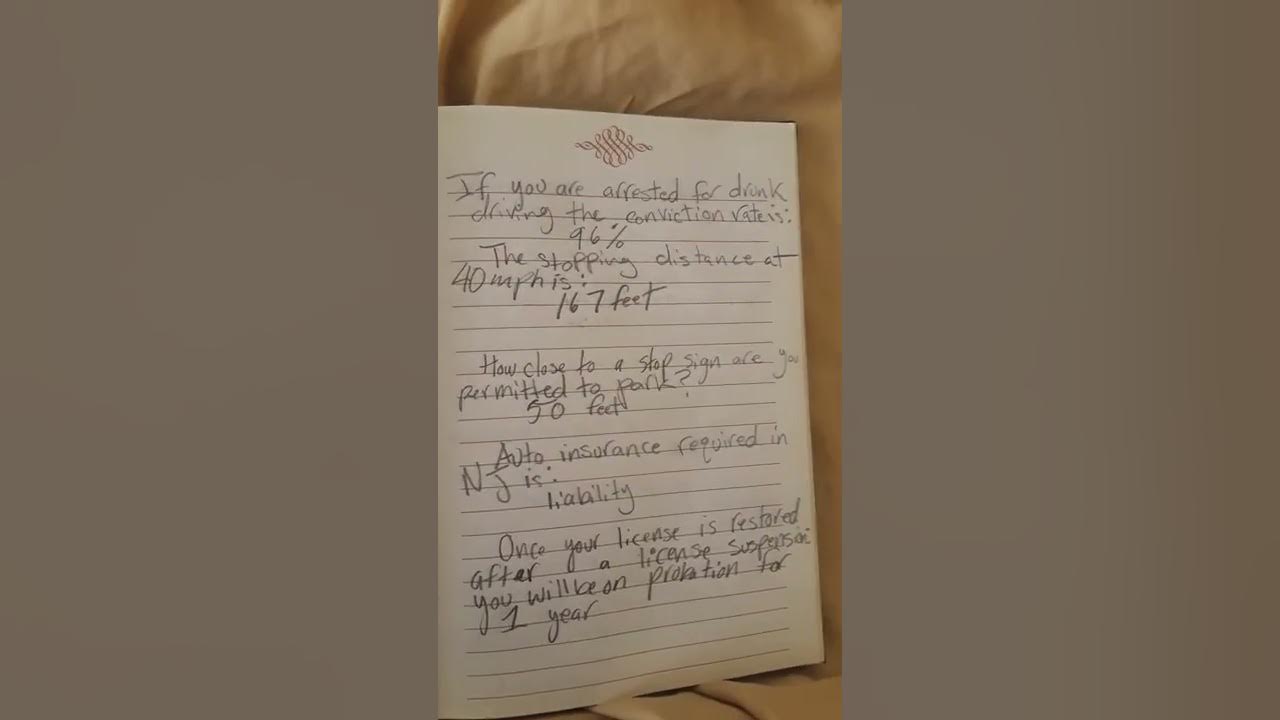 If you are arrested for drunk
driving the conviction rate is:
96%
The stopping distance at
40 mph is:
167 feet
How close to a stop sign are you
permitted to park?
50 feet
Auto insurance required in
NJ is:
liability
Once your license is restored
after a license suspension
you will be on probation for
1 year